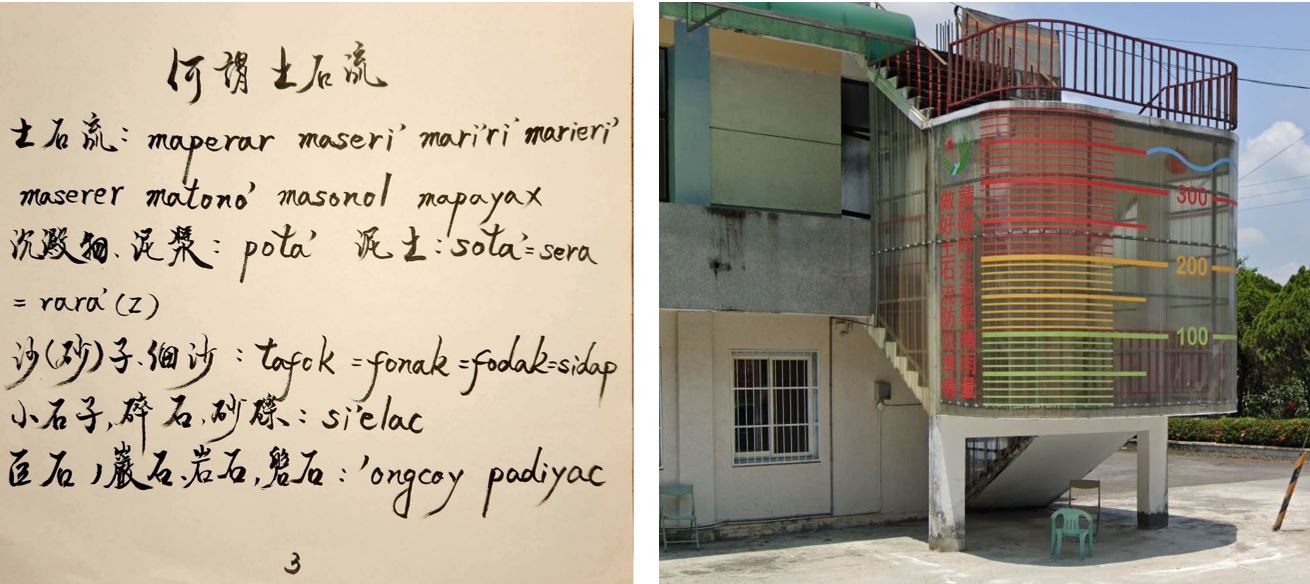 何謂土石流
土石流: maperar maseri' mari'ri' marieri'
maserer matono' masonol mapayax
沉澱物、泥漿: pota' 泥土: sota'=sera
= rara'(Z)
沙(砂)子、細沙: tafok =fonak =fodak=sidap
小石子,碎石,砂礫: si'elac
巨石,巖石、岩石,磐石: 'ongcoy padiyac
3
請隨時注意累積雨量
做好土石流防災準備
300
200
100